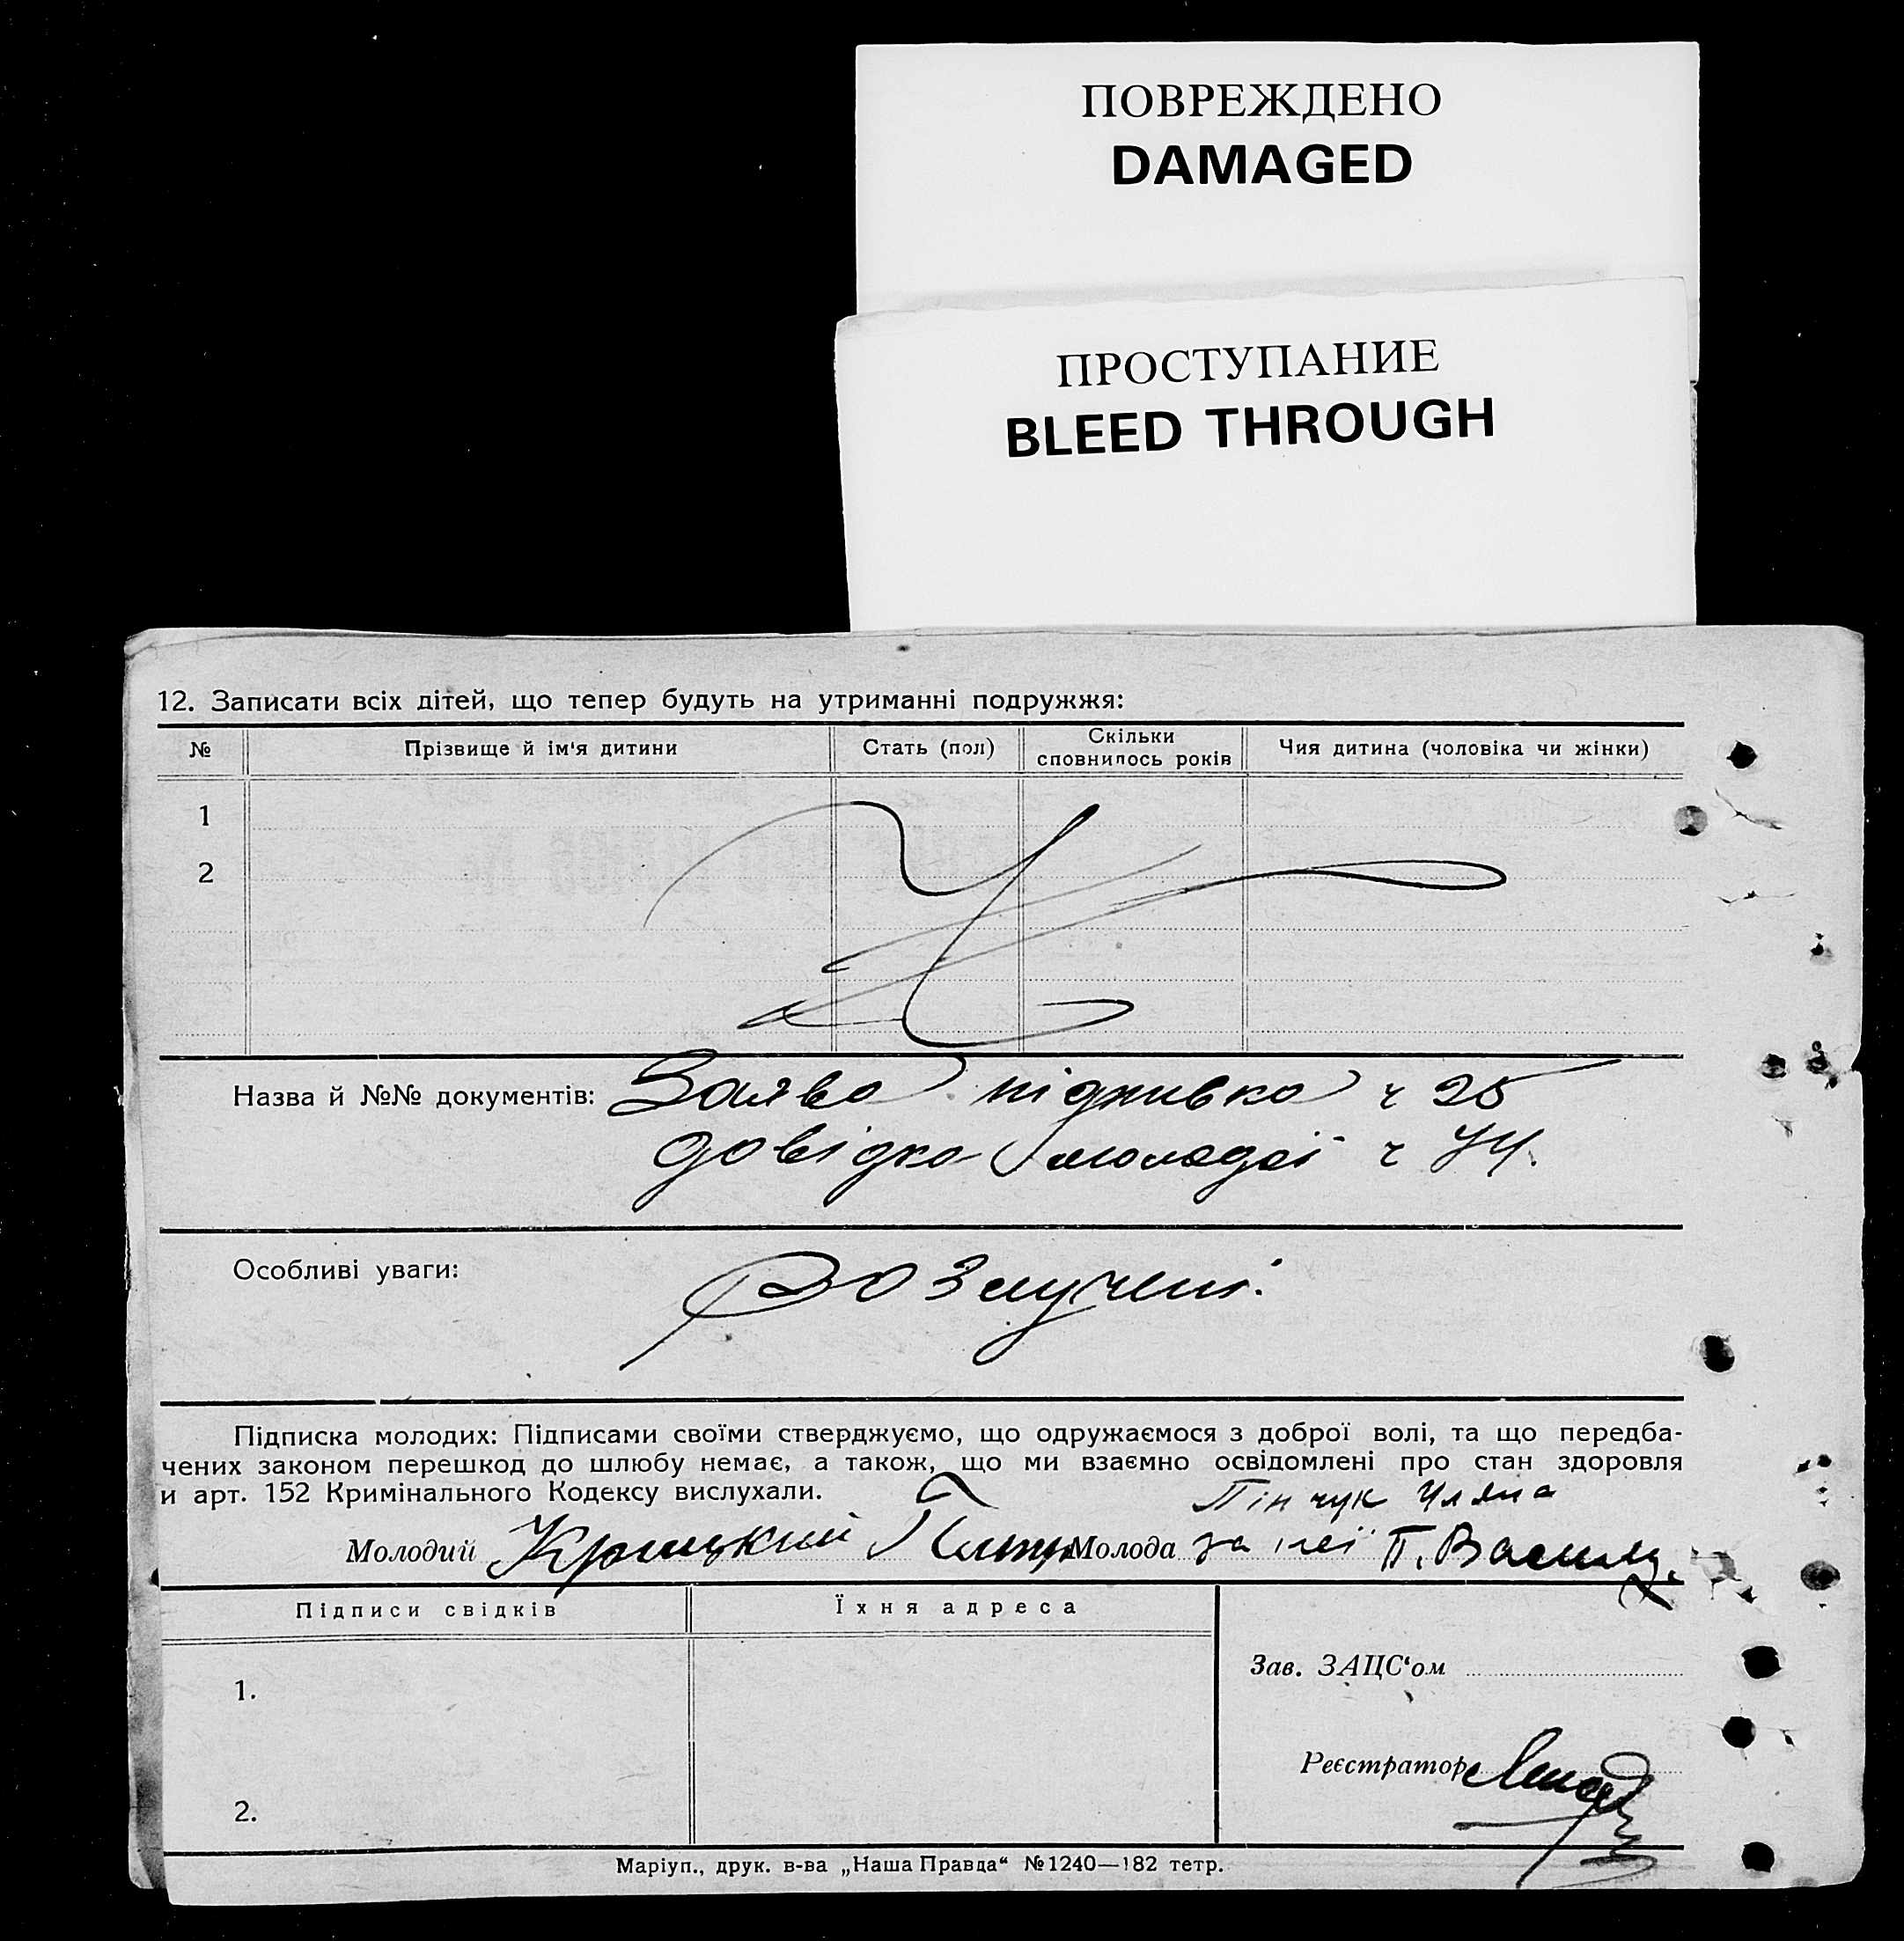 ПОВРЕЖДЕНО
DAMAGED
ПРОСТУПАНИЕ
BLEED THROUGH
12. Записати всіх дітей, що тепер будуть на утриманні подружжя:
№ Прізвище й ім'я дитини Стать (пол) Скільки сповнилось років Чия дитина (чоловіка чи жінки)
1
2
Назва й №№ документів: Заява ч 25
довідка молодої ч 74.
Особливі уваги: Розлучені.
Підписка молодих: Підписами своїми стверджуємо, що одружаємося з доброї волі, та що передба-
чених законом перешкод до шлюбу немає, а також, що ми взаємно освідомлені про стан здоровля
и арт. 152 Кримінального Кодексу вислухали.
Пінчук Уляна
Молодий Молода за неї П. Василь
Підписи свідків Їхня адреса
Зав. ЗАЦС‘ом
1.
Реєстратор
2.
Маріуп., друк. в-ва „Наша Правда“ №1240—182 тетр.